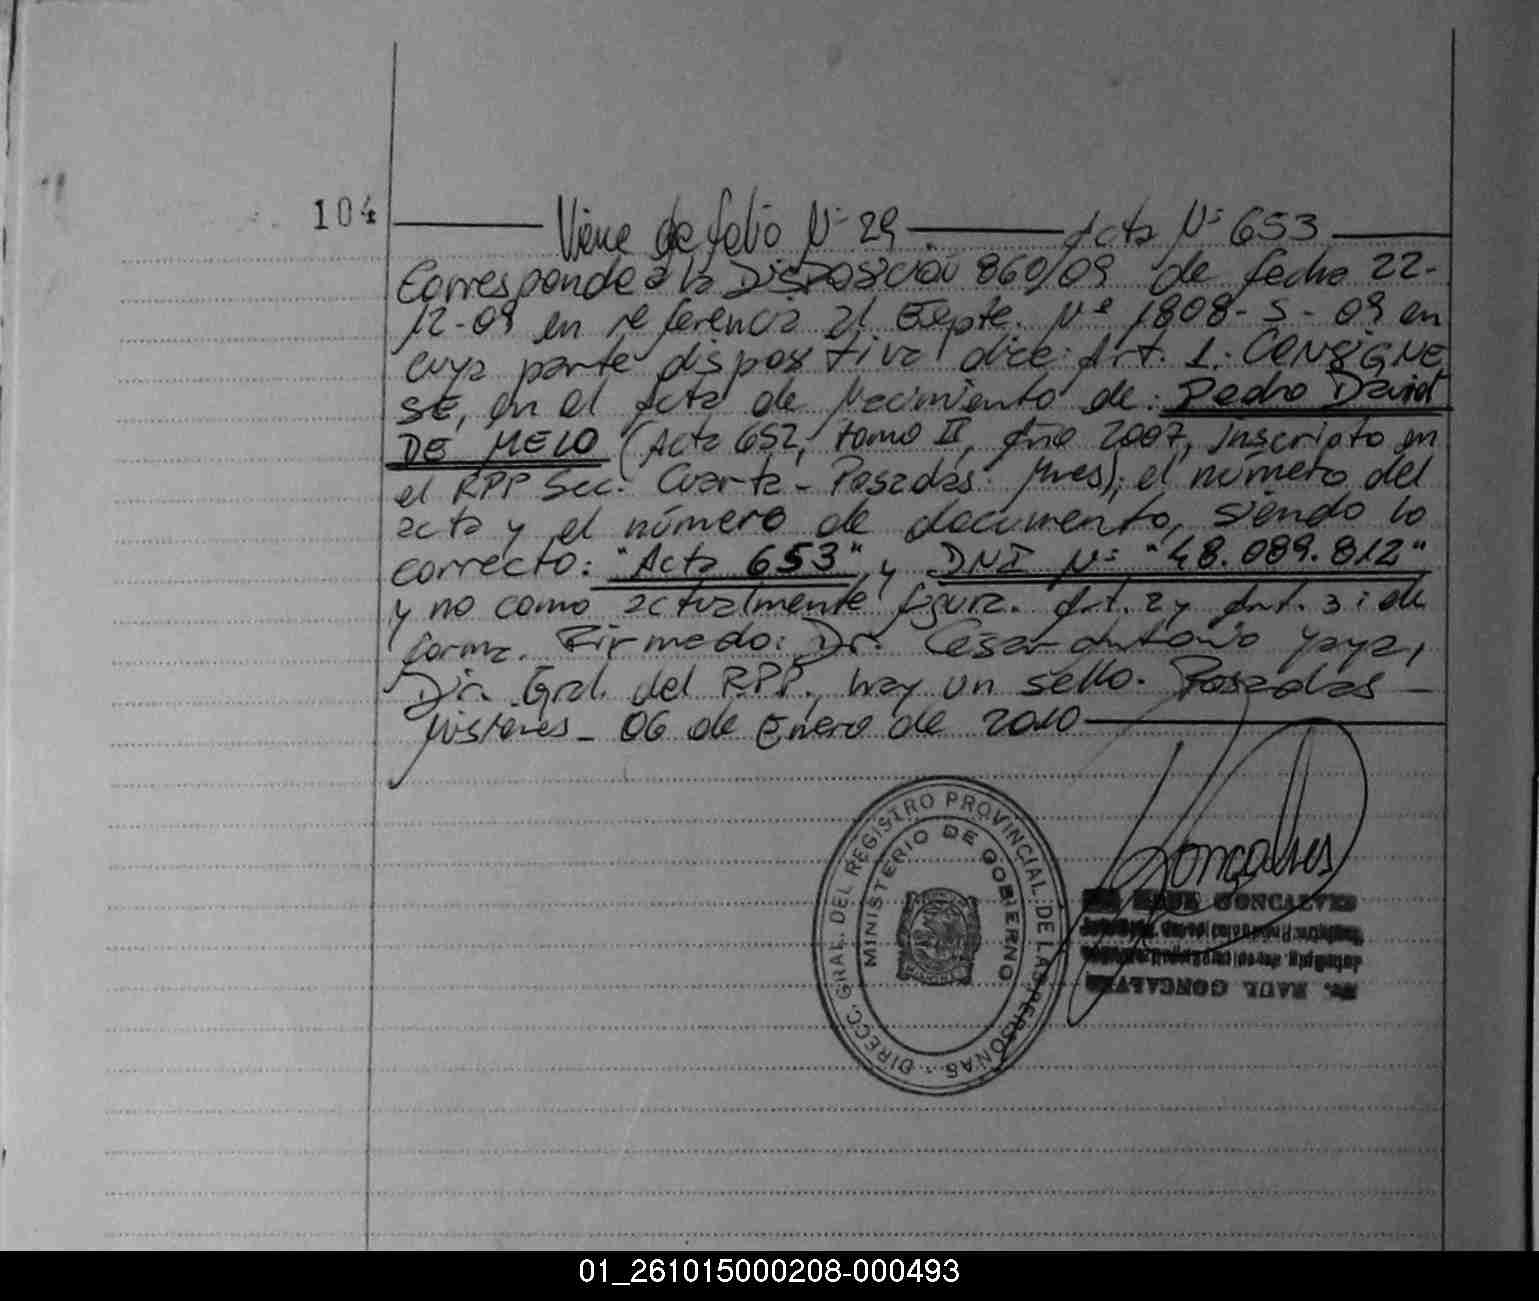 104
Viene de folio Nº 29 Acta Nº 653
Corresponde a la DISPOSICION 860/09 de fecha 22-
12-09 en referencia al Expte. Nº 1808-S-09 en
cuya parte dispositiva dice: Art. 1: CONSIGNE
SE, en el Acta de Nacimiento de: Pedro David
DE MELO (Acta 652, tomo II, Año 2007, inscripto en
el RPP Sec. Cuarta - Posadas Mnes); el número del
acta y el número de documento, siendo lo
correcto: "Acta 653" y DNI Nº "48.089.812"
y no como actualmente figura. Art. 2 y Art. 3: de
forma. Firmado: Dr. Cesar Antonio Yaya,
Dir. Gral. del RPP., hay un sello. Posadas -
Misiones - 06 de Enero de 2010
DIRECC. GRAL. DEL REGISTRO PROVINCIAL DE LAS PERSONAS -
MINISTERIO DE GOBIERNO
Goncalves
RAUL GONCALVES
Dr. RAUL GONCALVES
01_261015000208-000493